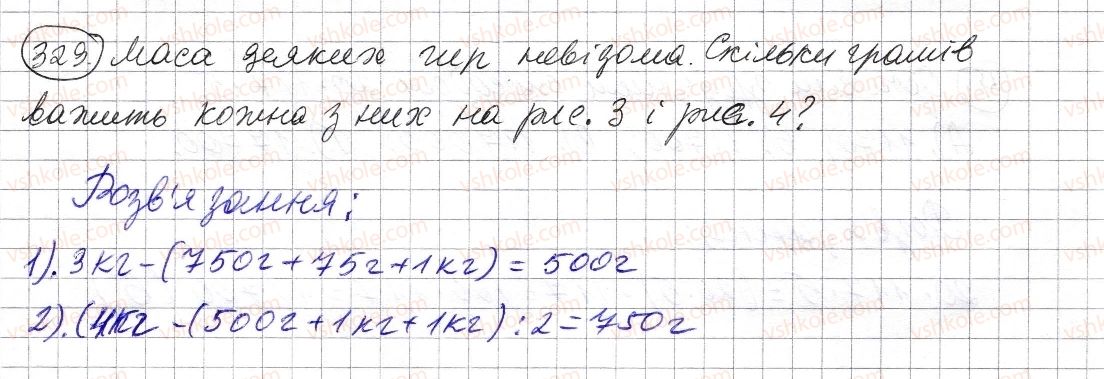 329. Маса деяких гир невідома. Скільки грамів
важить кожна з них на рис. 3 і рис. 4?
Розв'язання:
1). 3кг - (750г + 75г + 1кг) = 500г
2). (4кг - (500г + 1кг + 1кг) : 2 = 750г